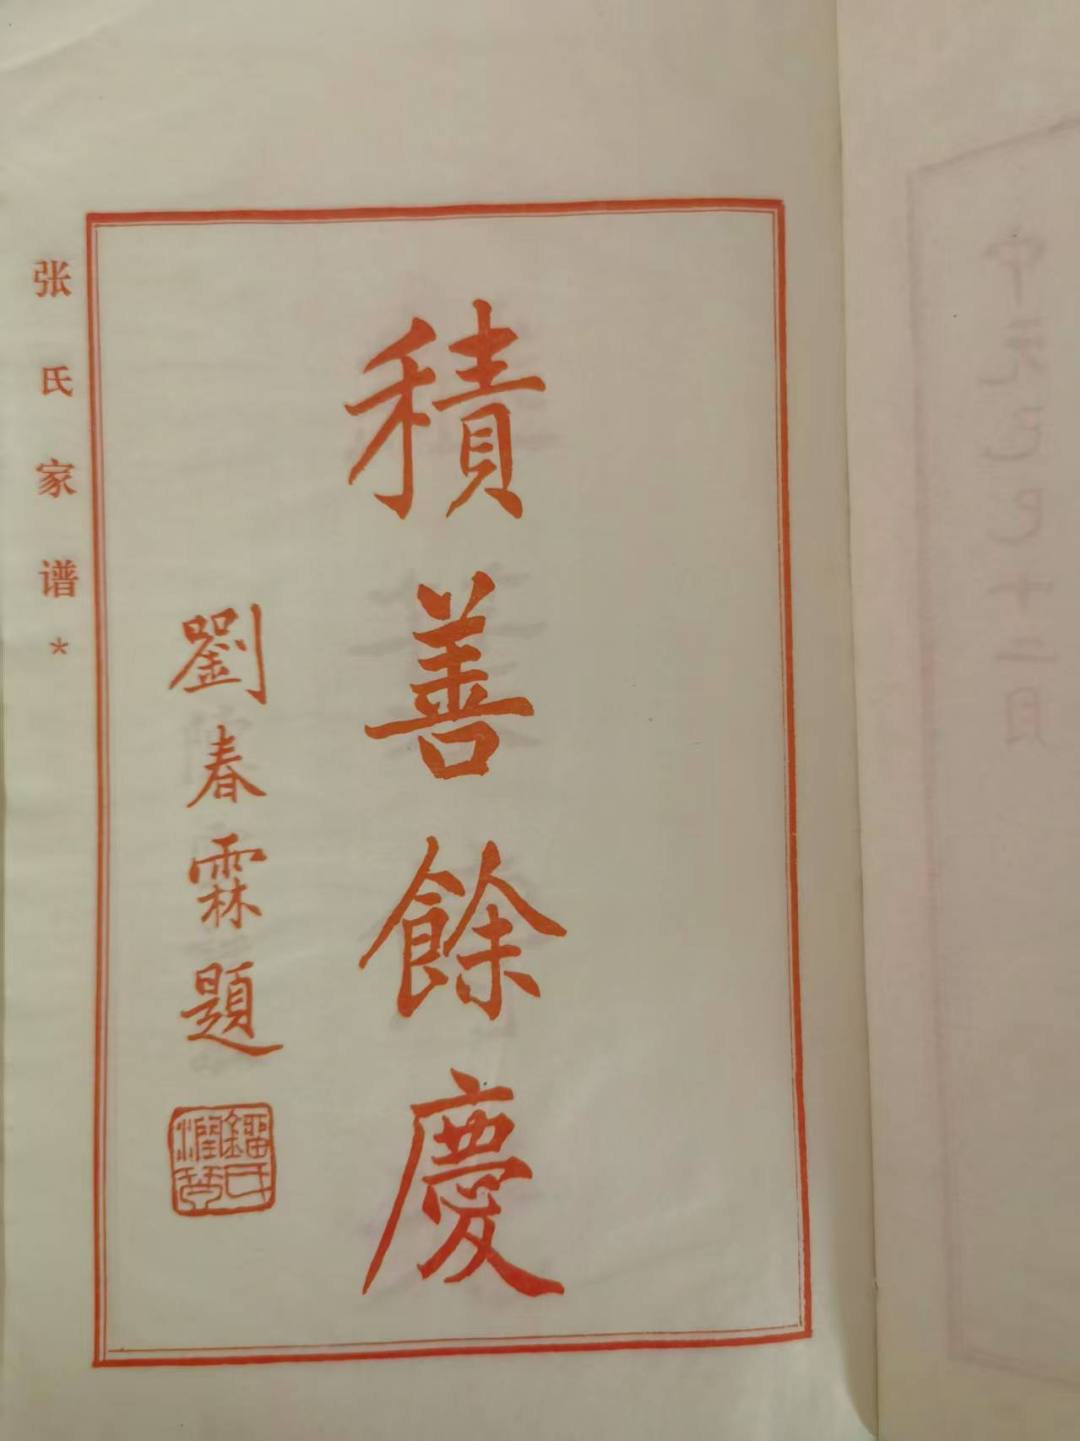 積善餘慶
劉春霖題
劉氏潤琴
张氏家谱*